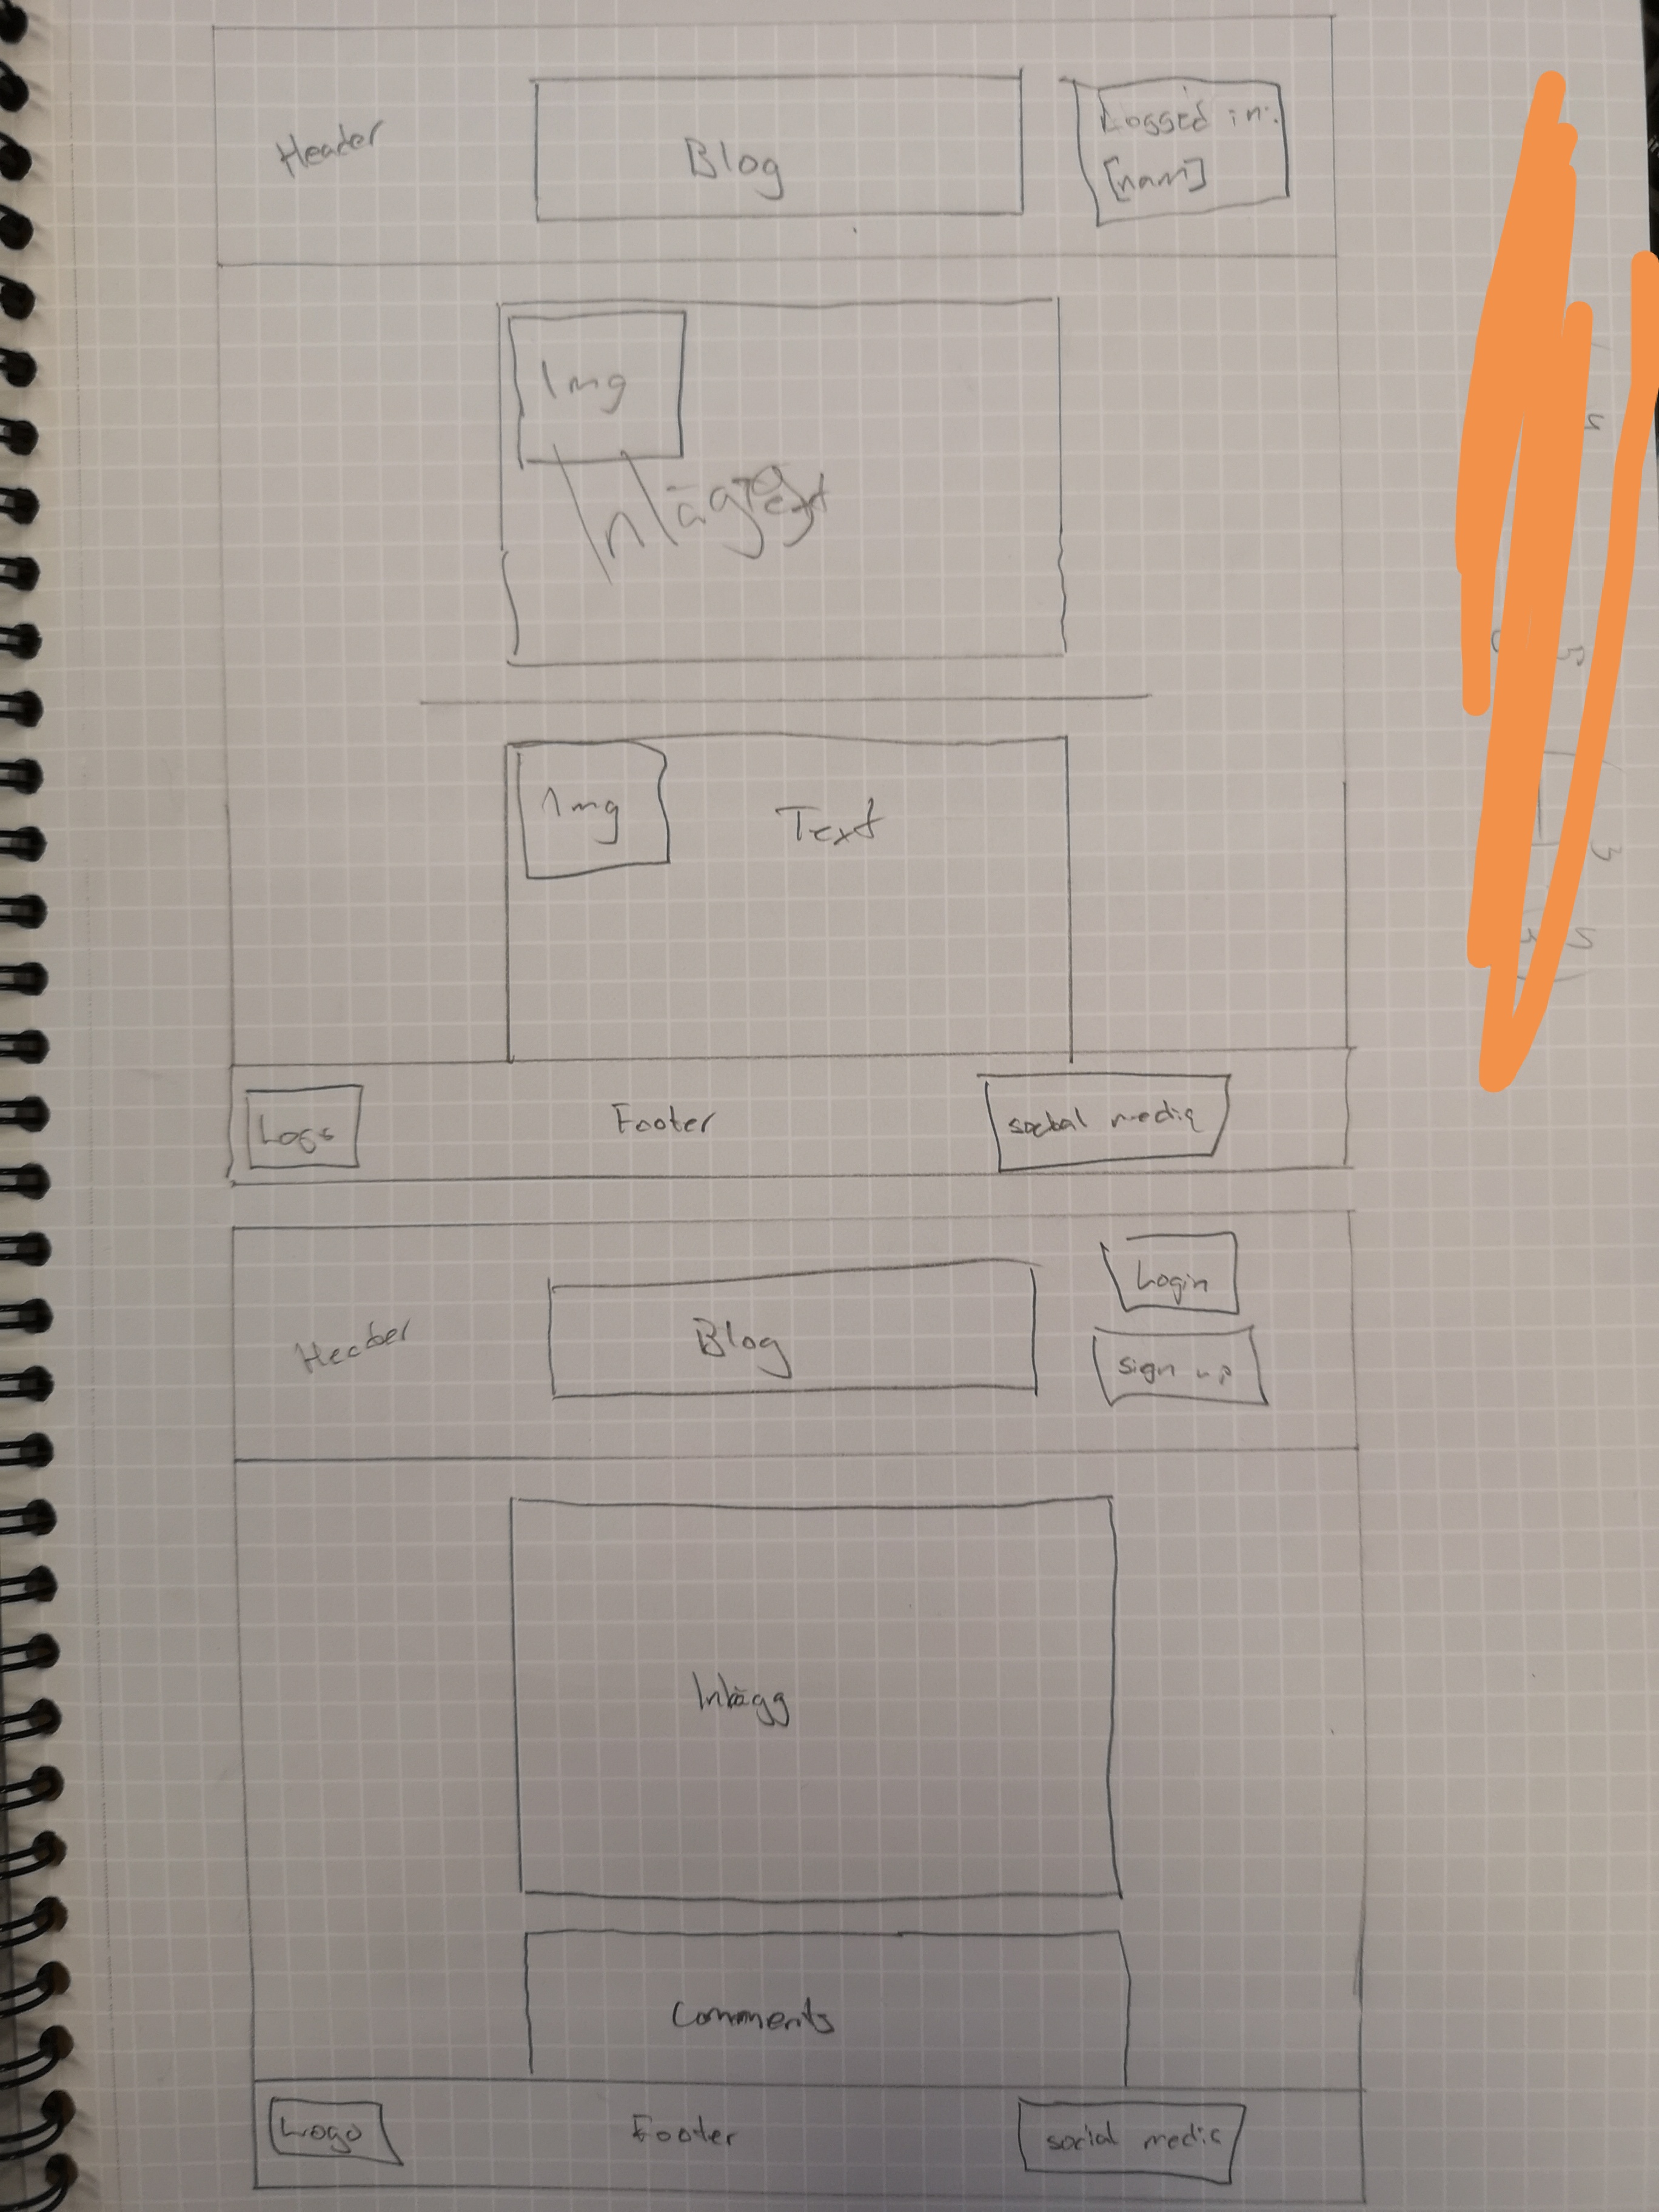 Header
Blog
Logged in:
[nam]
Img
Inlägg
Text
Img
Text
Logo
Footer
social media
Header
Blog
Login
sign up
Inlägg
Comments
Logo
Footer
social media